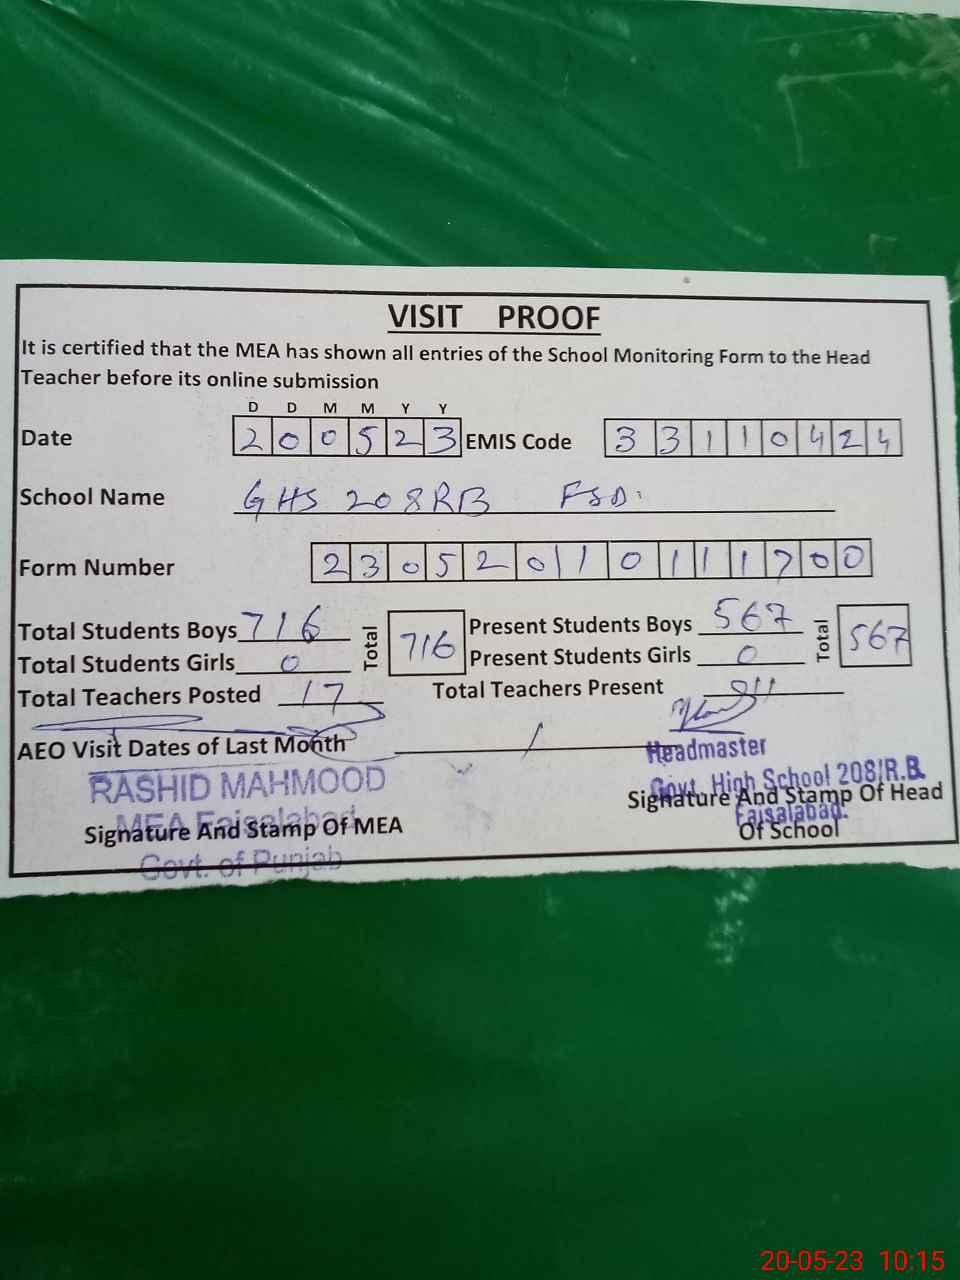 VISIT PROOF
It is certified that the MEA has shown all entries of the School Monitoring Form to the Head
Teacher before its online submission
D D M M Y Y
Date 2 0 0 5 2 3 EMIS Code 3 3 1 1 0 4 2 4
School Name GHS 208RB FSD.
Form Number 2 3 0 5 2 0 1 1 0 1 1 1 7 0 0
Total Students Boys 716 Total 716 Present Students Boys 567 Total 567
Total Students Girls 0 Present Students Girls 0
Total Teachers Posted 17 Total Teachers Present
AEO Visit Dates of Last Month /
Headmaster
RASHID MAHMOOD Govt. High School 208/R.B.
Signature And Stamp Of Head
MEA Faisalabad Faisalabad.
Signature And Stamp Of MEA Of School
Govt. of Punjab
20-05-23 10:15